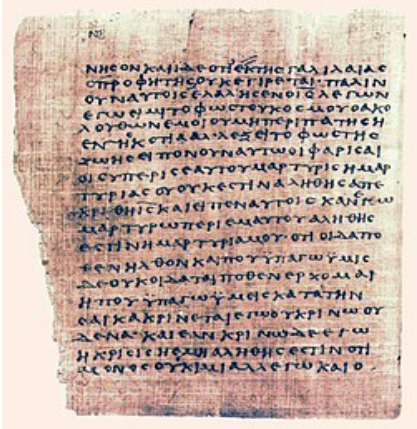 ΝΗϹΟΝ ΚΑΙ ΙΔΕ ΟΤΙ ΕΚ ΤΗϹ ΓΑΛΙΛΑΙΑϹ
Ο ΠΡΟΦΗΤΗϹ ΟΥΚ ΕΓΙΡΕΤΑΙ· ΠΑΛΙΝ
ΟΥΝ ΑΥΤΟΙϹ ΕΛΑΛΗϹΕΝ Ο ΙϹ̅ ΛΕΓΩΝ
ΕΓΩ ΕΙΜΙ ΤΟ ΦΩϹ ΤΟΥ ΚΟϹΜΟΥ Ο ΑΚΟ
ΛΟΥΘΩΝ ΕΜΟΙ ΟΥ ΜΗ ΠΕΡΙΠΑΤΗϹΗ
ΕΝ ΤΗ ϹΚΟΤΙΑ ΑΛΛ ΕΞΕΙ ΤΟ ΦΩϹ ΤΗϹ
ΖΩΗϹ ΕΙΠΟΝ ΟΥΝ ΑΥΤΩ ΟΙ ΦΑΡΙϹΑΙ
ΟΙ ϹΥ ΠΕΡΙ ϹΕΑΥΤΟΥ ΜΑΡΤΥΡΙϹ Η ΜΑΡ
ΤΥΡΙΑ ϹΟΥ ΟΥΚ ΕϹΤΙΝ ΑΛΗΘΗϹ ΑΠΕ
ΚΡΙΘΗ ΙϹ̅ ΚΑΙ ΕΙΠΕΝ ΑΥΤΟΙϹ ΚΑΝ ΕΓΩ
ΜΑΡΤΥΡΩ ΠΕΡΙ ΕΜΑΥΤΟΥ ΑΛΗΘΗϹ
ΕϹΤΙΝ Η ΜΑΡΤΥΡΙΑ ΜΟΥ· ΟΤΙ ΟΙΔΑ ΠΟ
ΘΕΝ ΗΛΘΟΝ ΚΑΙ ΠΟΥ ΥΠΑΓΩ ΥΜΙϹ
ΔΕ ΟΥΚ ΟΙΔΑΤΑΙ ΠΟΘΕΝ ΕΡΧΟΜΑΙ
Η ΠΟΥ ΥΠΑΓΩ ΥΜΕΙϹ ΚΑΤΑ ΤΗΝ
ΚΡΙΝΕΤΑΙ ΕΓΩ ΟΥ ΚΡΙΝΩ ΟΥ
ΔΕΝΑ· ΚΑΙ ΕΑΝ ΚΡΙΝΩ ΔΕ ΕΓΩ
Η ΚΡΙϹΙϹ Η ΕΜΗ ΑΛΗΘΗϹ ΕϹΤΙΝ ΟΤΙ
ΜΟΝΟϹ ΟΥΚ ΙΜΙ ΑΛΛ ΕΓΩ ΚΑΙ Ο